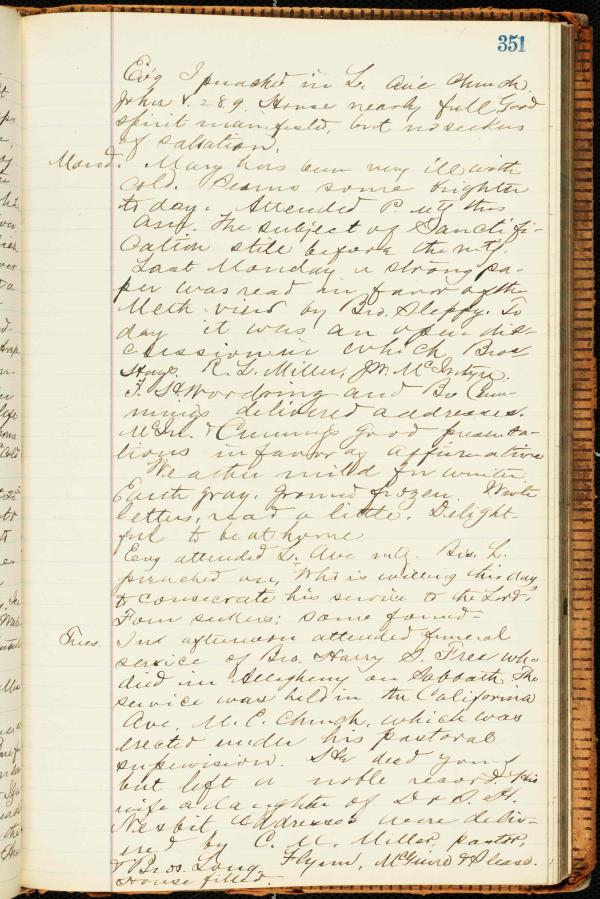 351
Ev'g I preached in L. Ave Church.
John 1. 2 8 9. House nearly full, Good
spirit manifested, but no seekers
of salvation.
Mond. Mary has been very ill with
cold. Seems some brighter
to day. Attended P. mtg this
A.M. The subject of Sanctifi-
cation still before the mt'g.
Last Monday a strong pa-
per was read in favor of the
Meth. view by Bro. Sleppy. To
day it was an open dis-
cussion in which Bros
Hays. R. L. Miller, J.W. McIntyre.
F. S. Woodring and Bro Cum-
mings delivered addresses.
McIn. & Cummings good presenta-
tions in favor of affirmative
Weather mild for winter
Earth gray. ground frozen. Wrote
letters, read a little. Delight-
ful to be at home.
Evg attended L. Ave mtg. Bro. L.
preached on, "Who is willing this day
to consecrate his service to the Lord."
Four seekers; some found-
Tues. In afternoon attended funeral
service of Bro. Harry S. Free who
died in Allegheny on Sabbath. The
service was held in the California
Ave. M. E. Church, which was
erected under his pastoral
supervision. He died young
but left a noble record. His
wife a daughter of Dr S. H.
Nesbit Addresses were deliv-
ered by C. M. Miller, pastor,
& Bros. Long, Flynn, McGuire & Slease.
House filled.